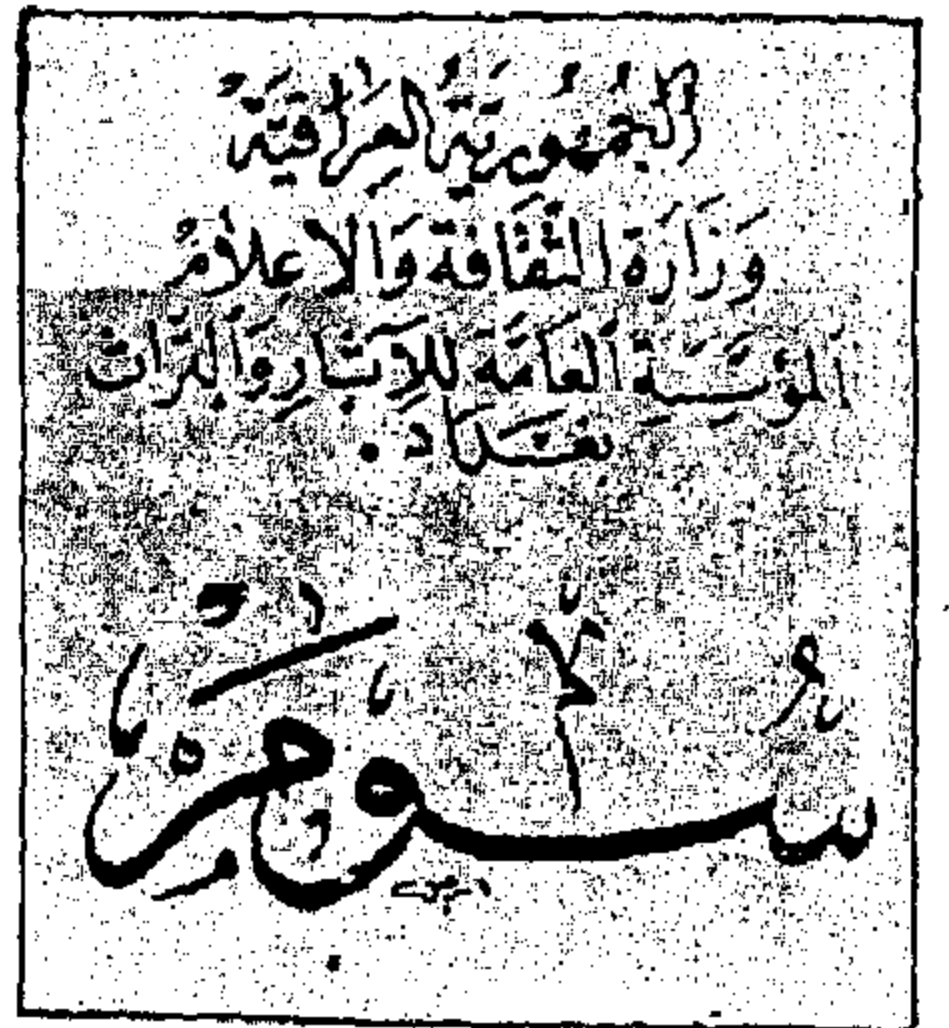 الجُمهُوريَّةُ العِرَاقيَّة
وَزَارَة الثقَافة وَالاعلامُ
المؤسَّسَة العَامَّة للآثارِ وَالتراث
بغـدَاد .
سُومَر